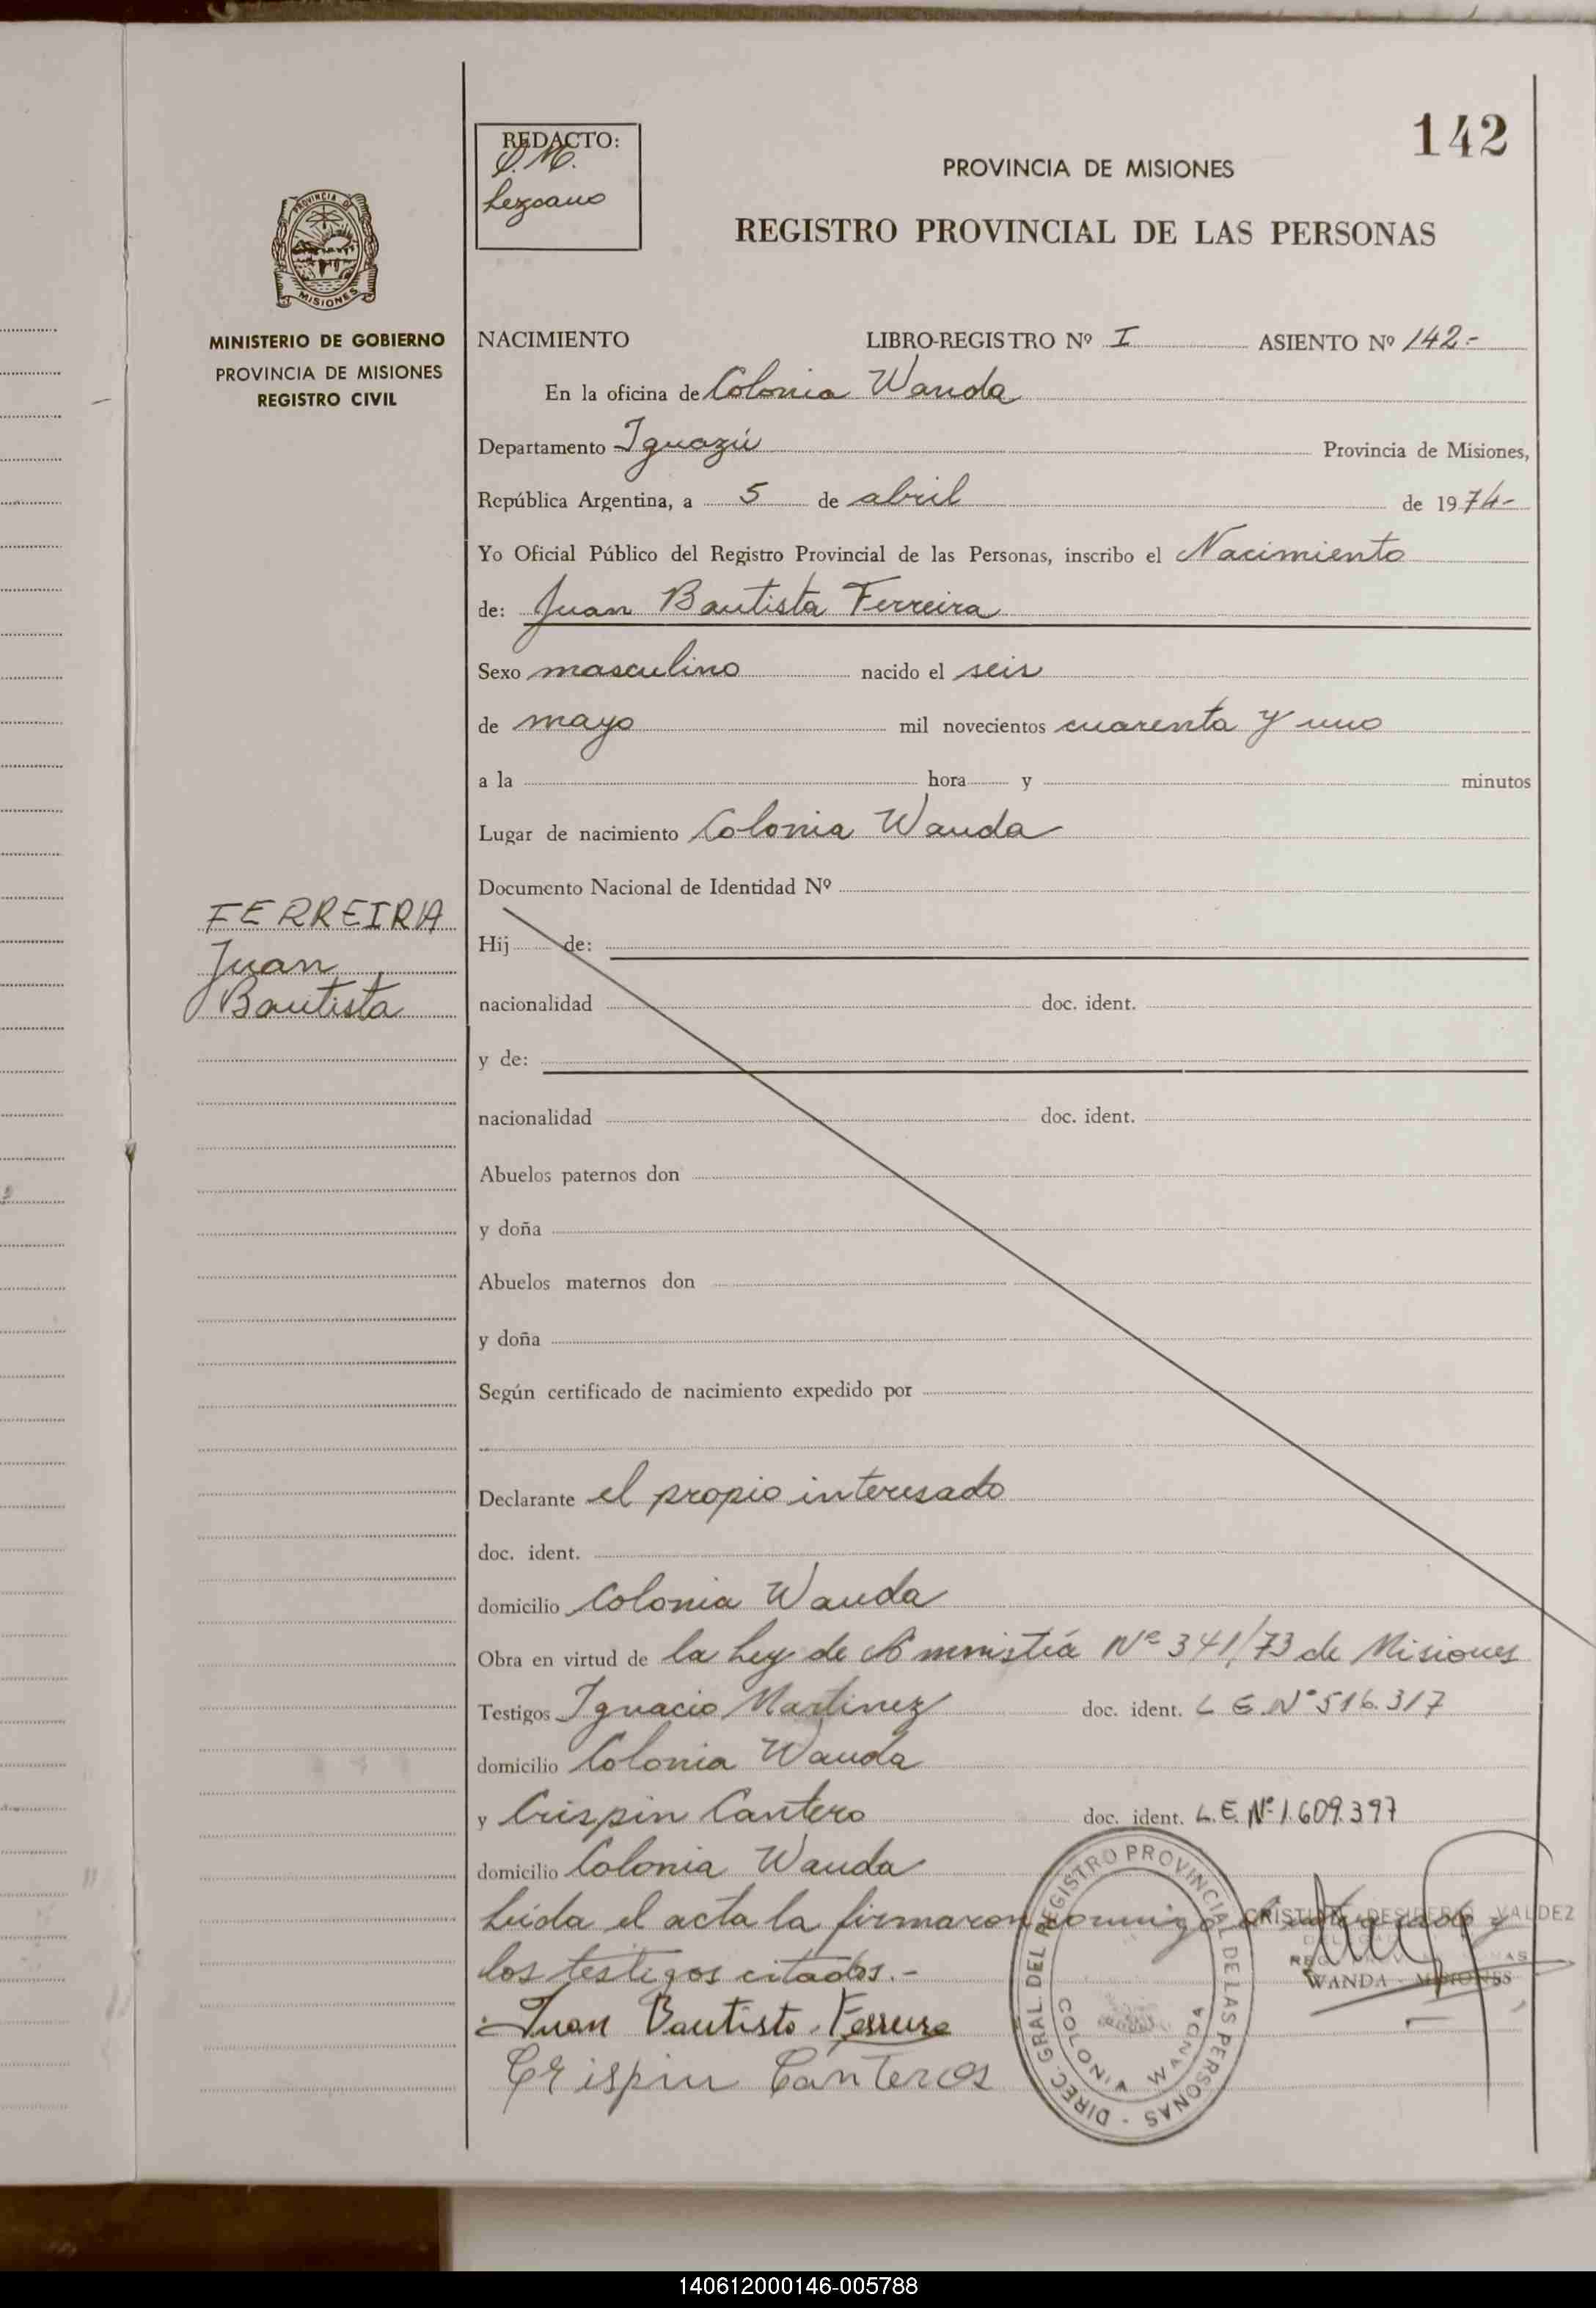 142
REDACTO:
Lezcano
PROVINCIA DE MISIONES
REGISTRO PROVINCIAL DE LAS PERSONAS
PROVINCIA D
MISIONES
MINISTERIO DE GOBIERNO
PROVINCIA DE MISIONES
REGISTRO CIVIL
NACIMIENTO LIBRO-REGISTRO Nº I ASIENTO Nº 142.-
En la oficina de Colonia Wanda
Departamento Iguazú Provincia de Misiones,
República Argentina, a 5 de abril de 1974-
Yo Oficial Público del Registro Provincial de las Personas, inscribo el Nacimiento
de: Juan Bautista Ferreira
Sexo masculino nacido el seis
de mayo mil novecientos cuarenta y uno
a la hora y minutos
Lugar de nacimiento Colonia Wanda
Documento Nacional de Identidad Nº
FERREIRA
Juan
Bautista
Hij de:
nacionalidad doc. ident.
y de:
nacionalidad doc. ident.
Abuelos paternos don
y doña
Abuelos maternos don
y doña
Según certificado de nacimiento expedido por
Declarante el propio interesado
doc. ident.
domicilio Colonia Wanda
Obra en virtud de la Ley de Amnistía Nº 341/73 de Misiones
Testigos Ignacio Martinez doc. ident. L E. Nº 516.317
domicilio Colonia Wanda
y Crispin Cantero doc. ident. L.E. Nº 1.609.397
domicilio Colonia Wanda
Leída el acta la firmaron conmigo el interesado y
los testigos citados.-
Juan Bautista Ferreira
Crispin Canteros
DIREC. GRAL. DEL REGISTRO PROVINCIAL DE LAS PERSONAS -
COLONIA WANDA
CRISTIAN DESIDERIO VALDEZ
WANDA - MISIONES
140612000146-005788